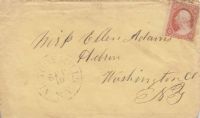 Miss Ellen Adams
Hebron
Washington Co
N.Y.